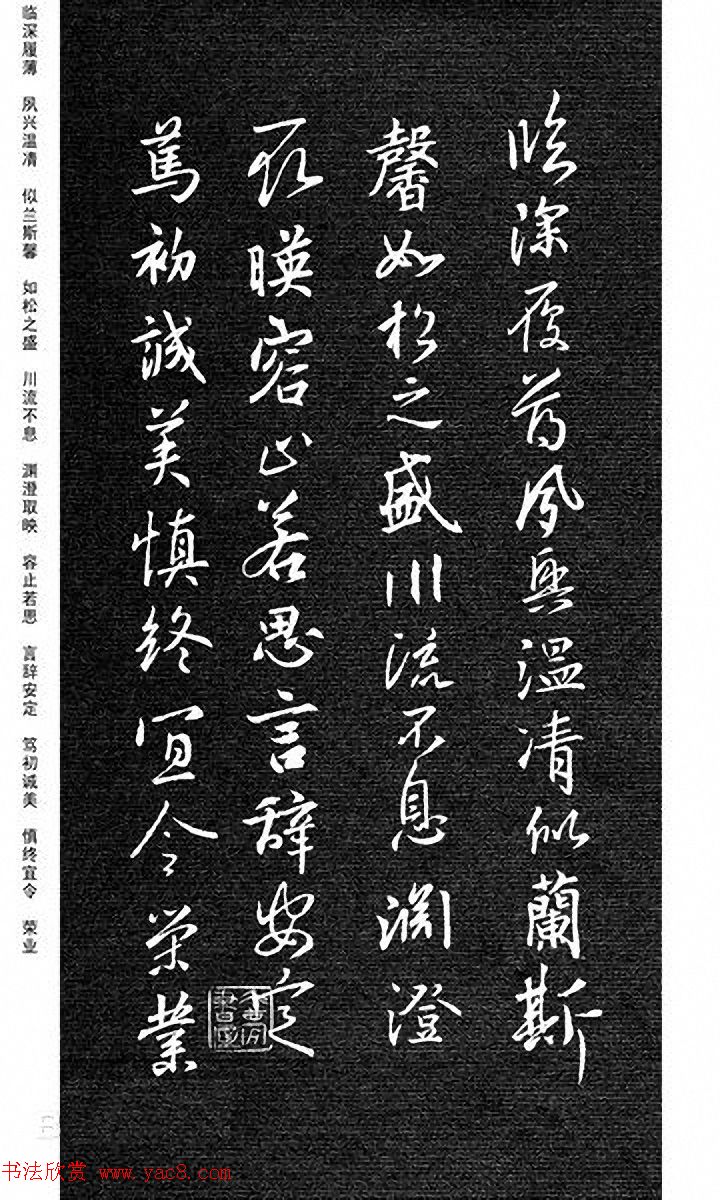 臨深履薄夙興溫凊似蘭斯
馨如松之盛川流不息淵澄
取暎容止若思言辭安定
篤初誠美慎終宜令榮業
临深履薄 夙兴温凊 似兰斯馨 如松之盛 川流不息 渊澄取映 容止若思 言辞安定 笃初诚美 慎终宜令 荣业
书法欣赏 www.yac8.com